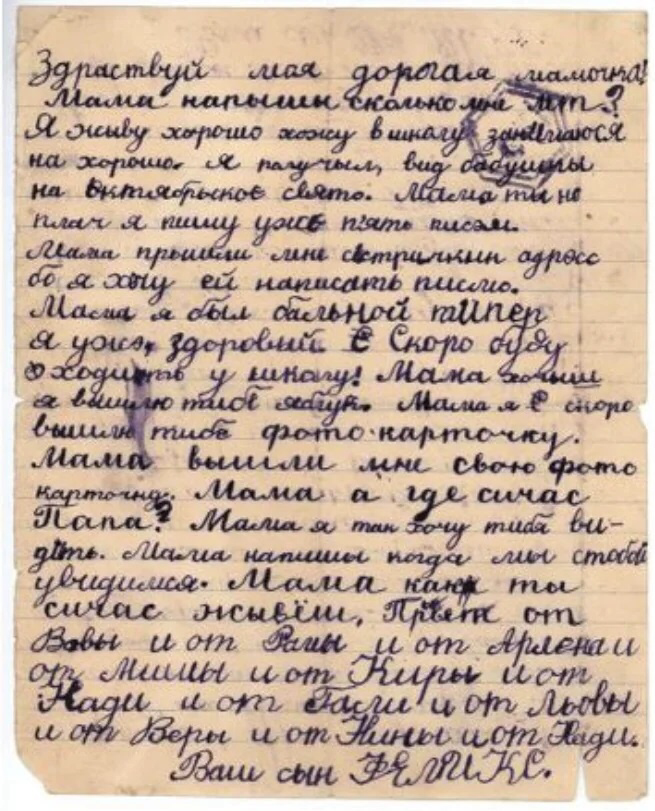 Здраствуй мая дорогая мамочка!
Мама напышы сколько мне лет?
Я живу харошо хожу в школу занимаюся
на хорошо. Я получыл, вид бабушы
на Октябрьское свято. Мама ты не
плач я пишу уже пять писем.
Мама прышли мне адресс
бо я хочу ей написать писмо.
Мама я был бальной типер
я уже, здоровый Скоро буду
ходить у школу! Мама хочыш
я вышлю тибе яблук. Мама я скоро
вышлю тибе фото-карточку.
Мама вышли мне свою фото
карточку. Мама а где сичас
Папа? Мама я так хочу тибя ви-
дить. Мама напишы когда мы стобой
увидимся. Мама как ты
сичас жывёш, Првет от
Вовы и от Раи и от и
от Мишы и от Киры и от
Нади и от Гали и от Льовы
и от Веры и от Нины и от Нади.
Ваш сын ФЕЛИКС.